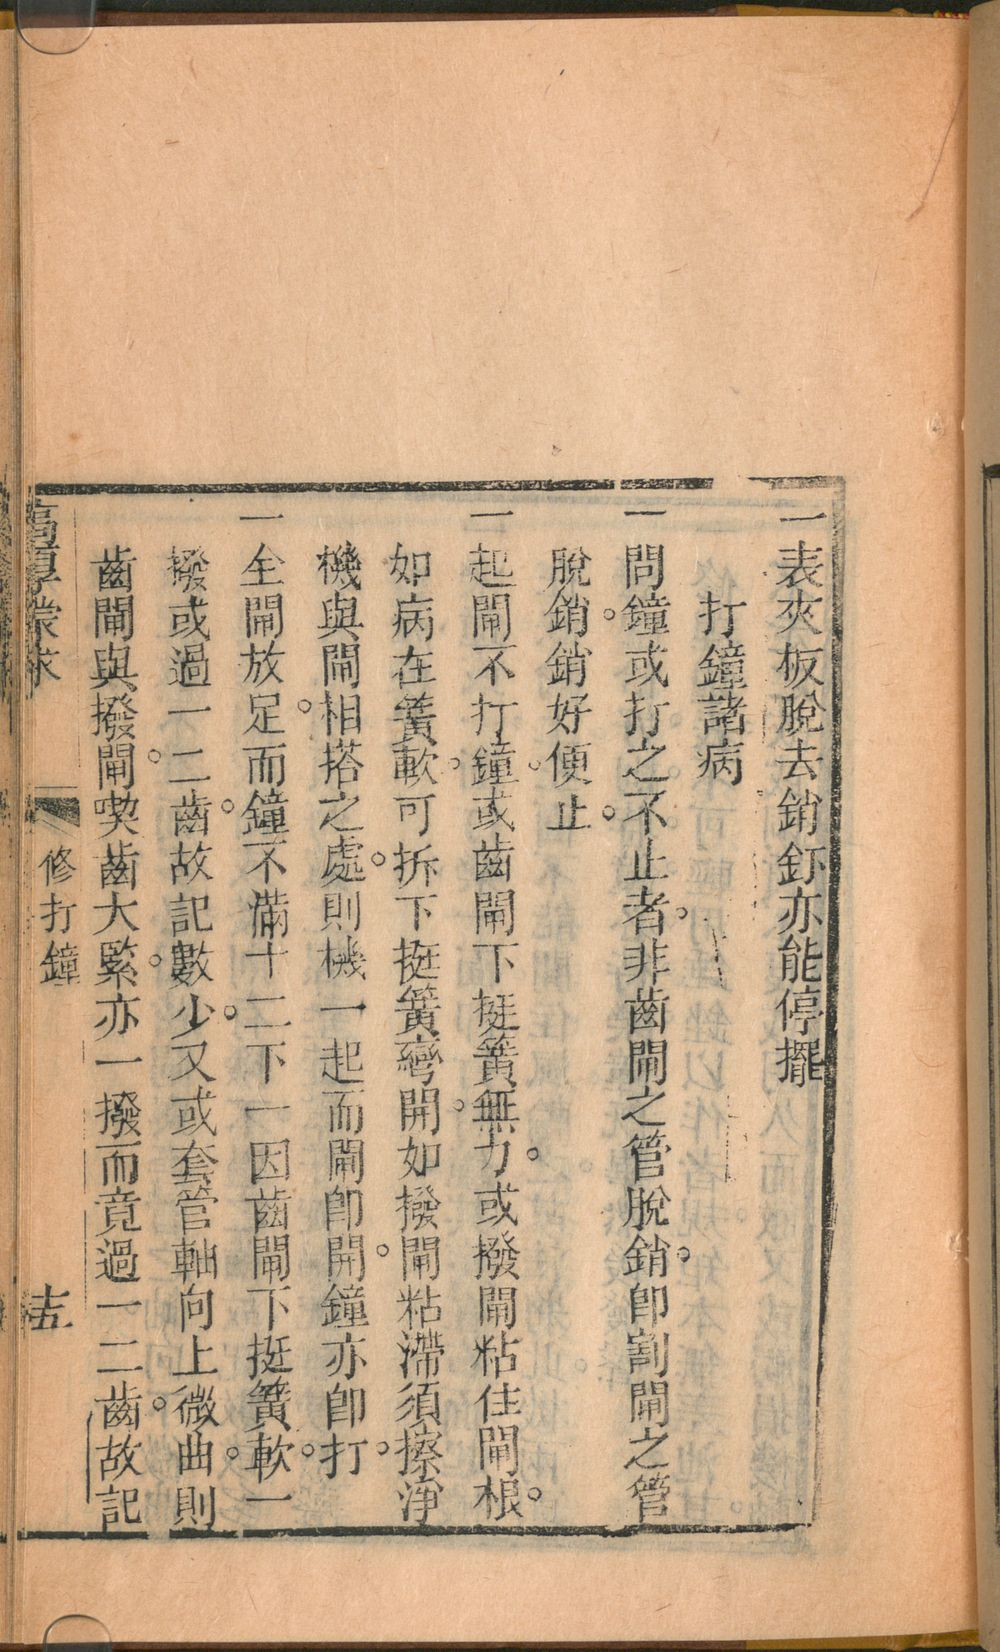 一表夾板脫去銷釘亦能停擺
打鐘諸病
一問鐘或打之不止者。非齒閘之管脫銷。卽割閘之管
脫銷。銷好便止。
一起閘不打鐘。或齒閘下挺簧無力。或撥閘粘住閘根。
如病在簧軟。可拆下挺簧彎開。如撥閘粘滯須擦淨
機與閘相搭之處。則機一起而閘卽開。鐘亦卽打。
一全閘放足。而鐘不滿十二下一因齒閘下挺簧軟。一
撥或過一二齒。故記數少。又或套管軸向上微曲。則
齒閘與撥閘。喫齒大緊。亦一撥而竟過一二齒。故記
高厚蒙求
修打鐘
十五